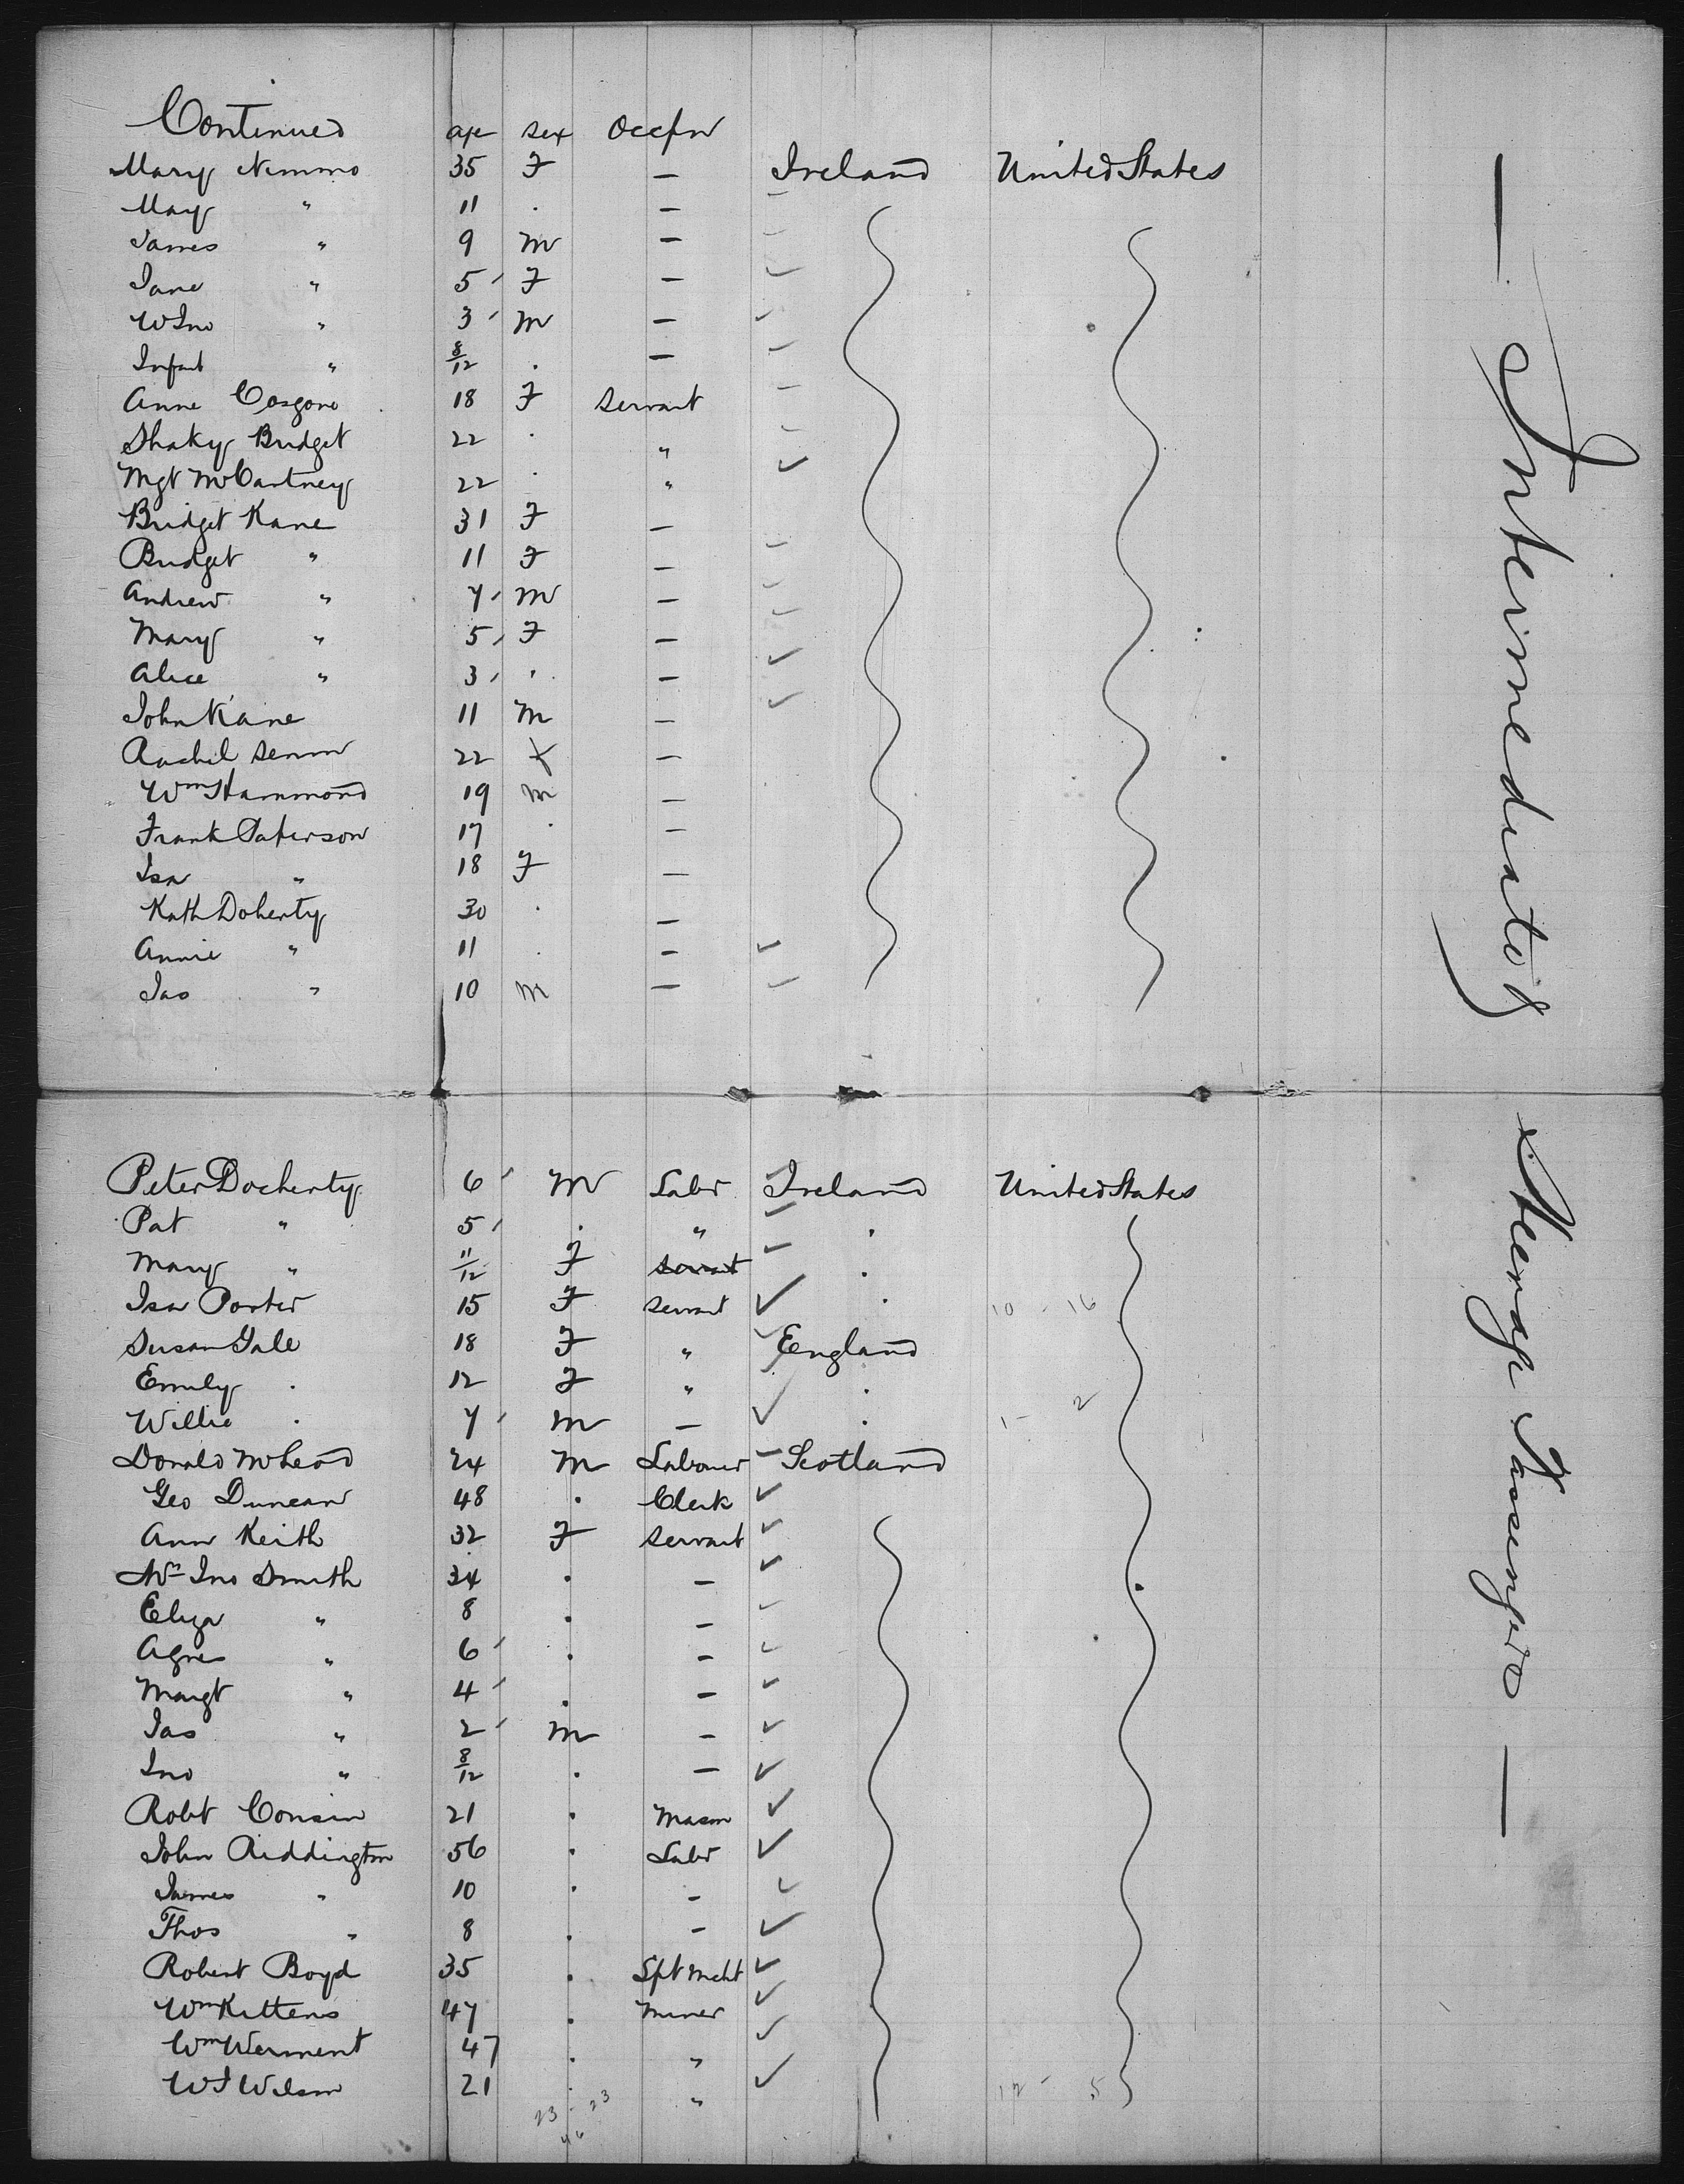 Continued age sex Occpn
Mary Nimmo 35 F — Ireland United States
Mary " 11 . —
James " 9 M —
Jane " 5 F —
Wm " 3 M —
Infant " 8/12 . —
Anne Cosgrove 18 F Servant
Bridget 22 . "
Mgt McCartney 22 . "
Bridget Kane 31 F —
Bridget " 11 F —
Andrew " 7 M —
Mary " 5 F —
Alice " 3 . —
John Kane 11 M —
Rachel 22 F —
Wm Hammond 19 M —
Frank Paterson 17 . —
Isa " 18 F —
Kath Doherty 30 . —
Annie " 11 . —
Jas " 10 M —
Intermediate
Peter Docherty 6 M Labr Ireland United States
Pat " 5 . " .
Mary " 11/12 F Servant .
Isa Porter 15 F Servant . 10 - 16
Susan Gale 18 F " England
Emily . 12 F " .
Willie . 7 M — . 1 - 2
Donald McLeod 24 M Labourer Scotland
Geo Duncan 48 . Clerk
Ann Keith 32 F Servant
Mrs Jno Smith 34 . —
Eliza " 8 . —
Agnes " 6 . —
Margt " 4 . —
Jas " 2 M —
Jno " 8/12 . —
Robt Cousin 21 . Mason
John Riddington 56 . Labr
James " 10 . —
Thos " 8 . —
Robert Boyd 35 . Spt Mcht
Wm Kittens 47 . Miner
Wm Werment 47 . "
W J Wilson 21 . " 12 - 5
23 - 23
46
Steerage Passengers —